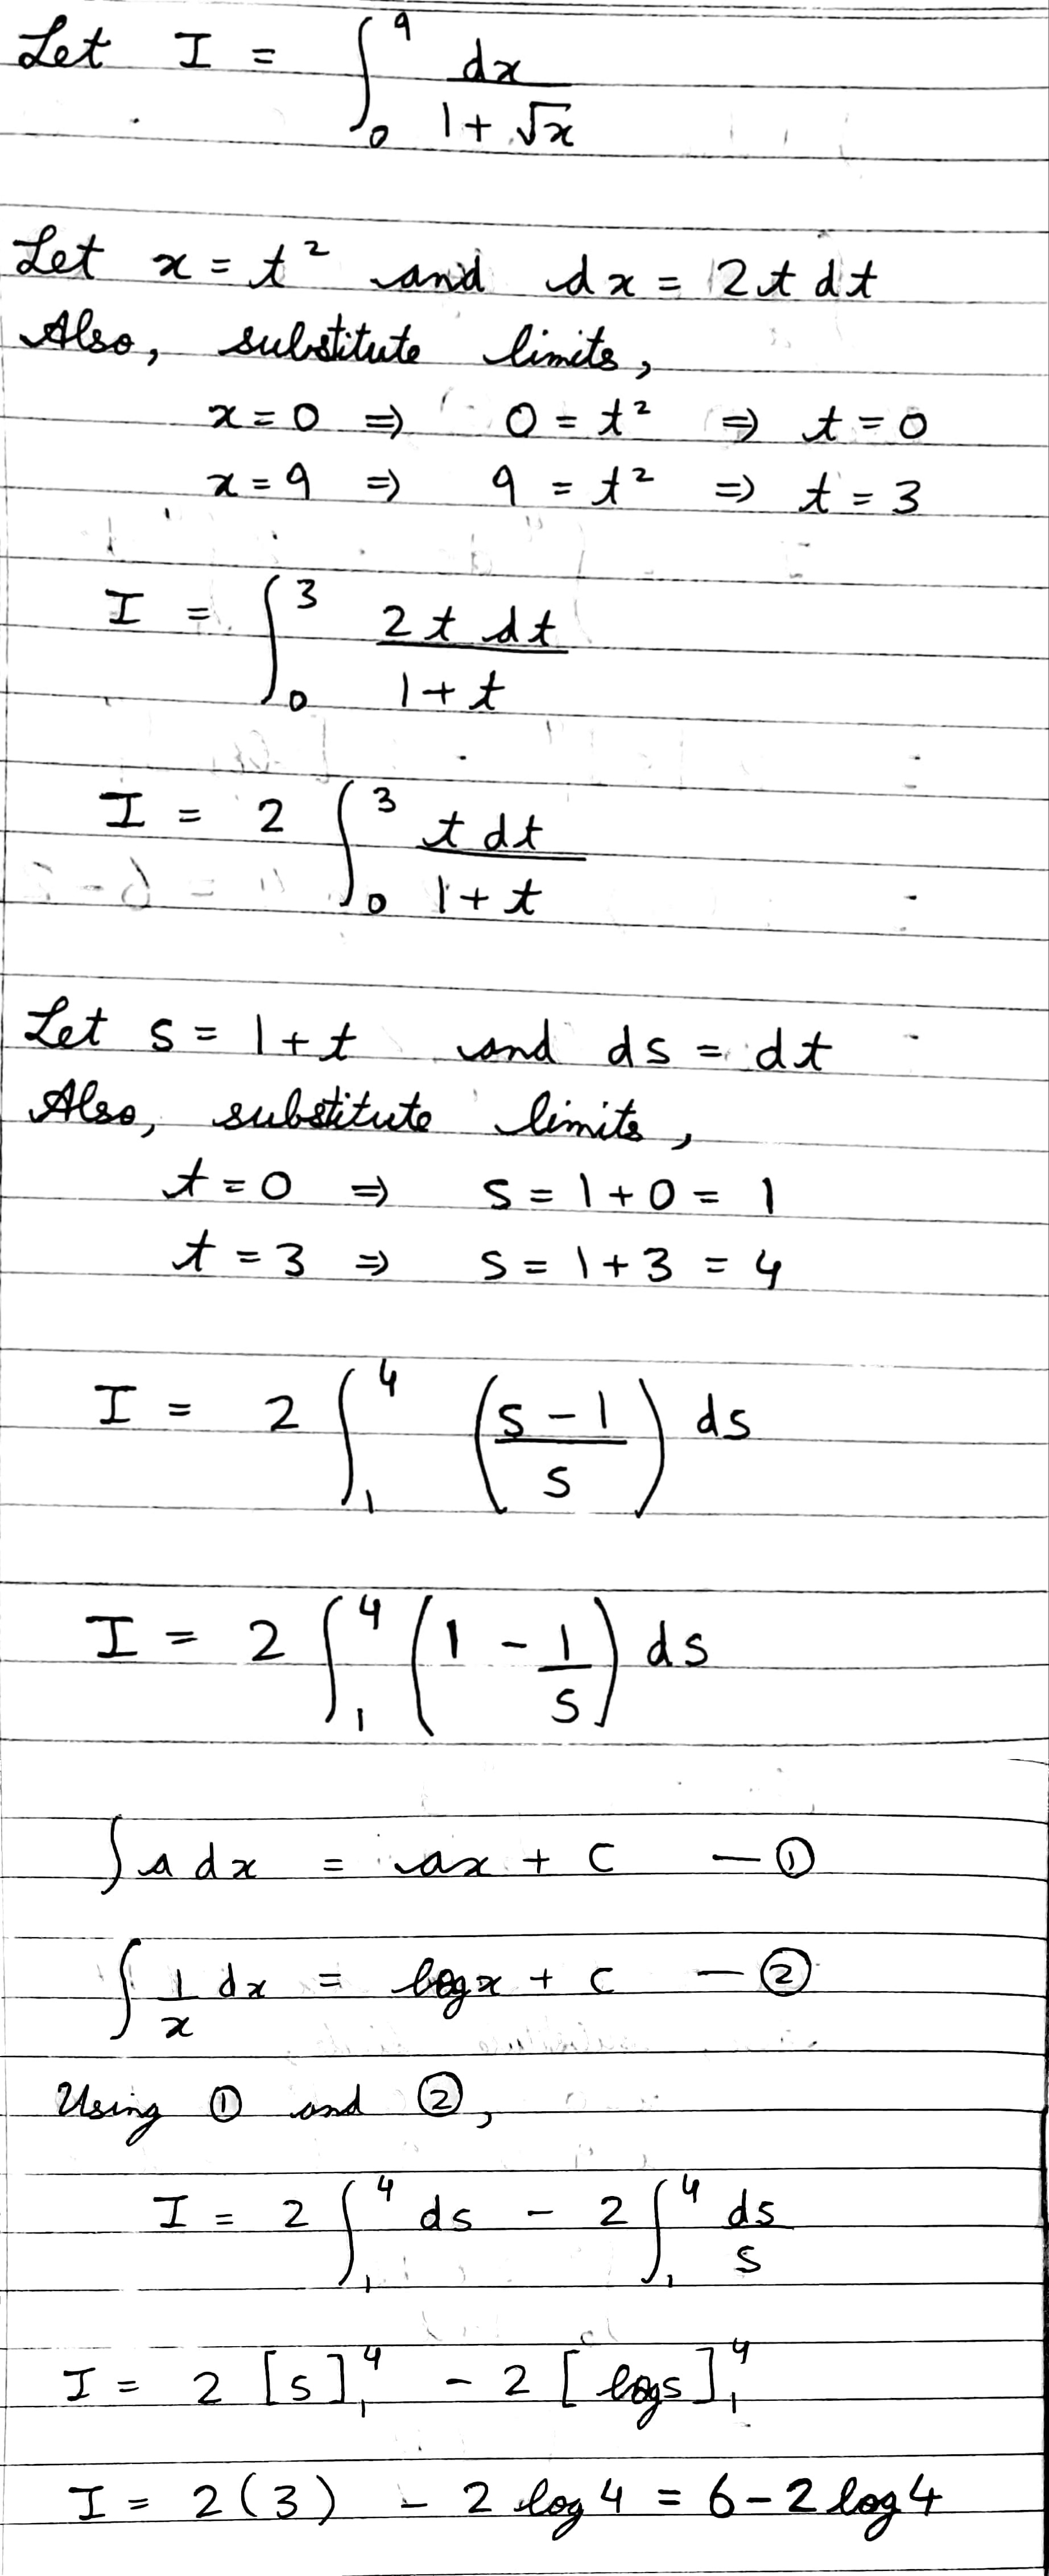 Let I = ∫₀⁹ dx / (1 + √x)
Let x = t² and dx = 2t dt
Also, substitute limits,
x = 0 ⇒ 0 = t² ⇒ t = 0
x = 9 ⇒ 9 = t² ⇒ t = 3
I = ∫₀³ 2t dt / (1 + t)
I = 2 ∫₀³ t dt / (1 + t)
Let s = 1 + t and ds = dt
Also, substitute limits,
t = 0 ⇒ s = 1 + 0 = 1
t = 3 ⇒ s = 1 + 3 = 4
I = 2 ∫₁⁴ ((s - 1) / s) ds
I = 2 ∫₁⁴ (1 - 1/s) ds
∫ a dx = ax + c — ①
∫ 1/x dx = log x + c — ②
Using ① and ②,
I = 2 ∫₁⁴ ds - 2 ∫₁⁴ ds/s
I = 2 [s]₁⁴ - 2 [log s]₁⁴
I = 2(3) - 2 log 4 = 6 - 2 log 4